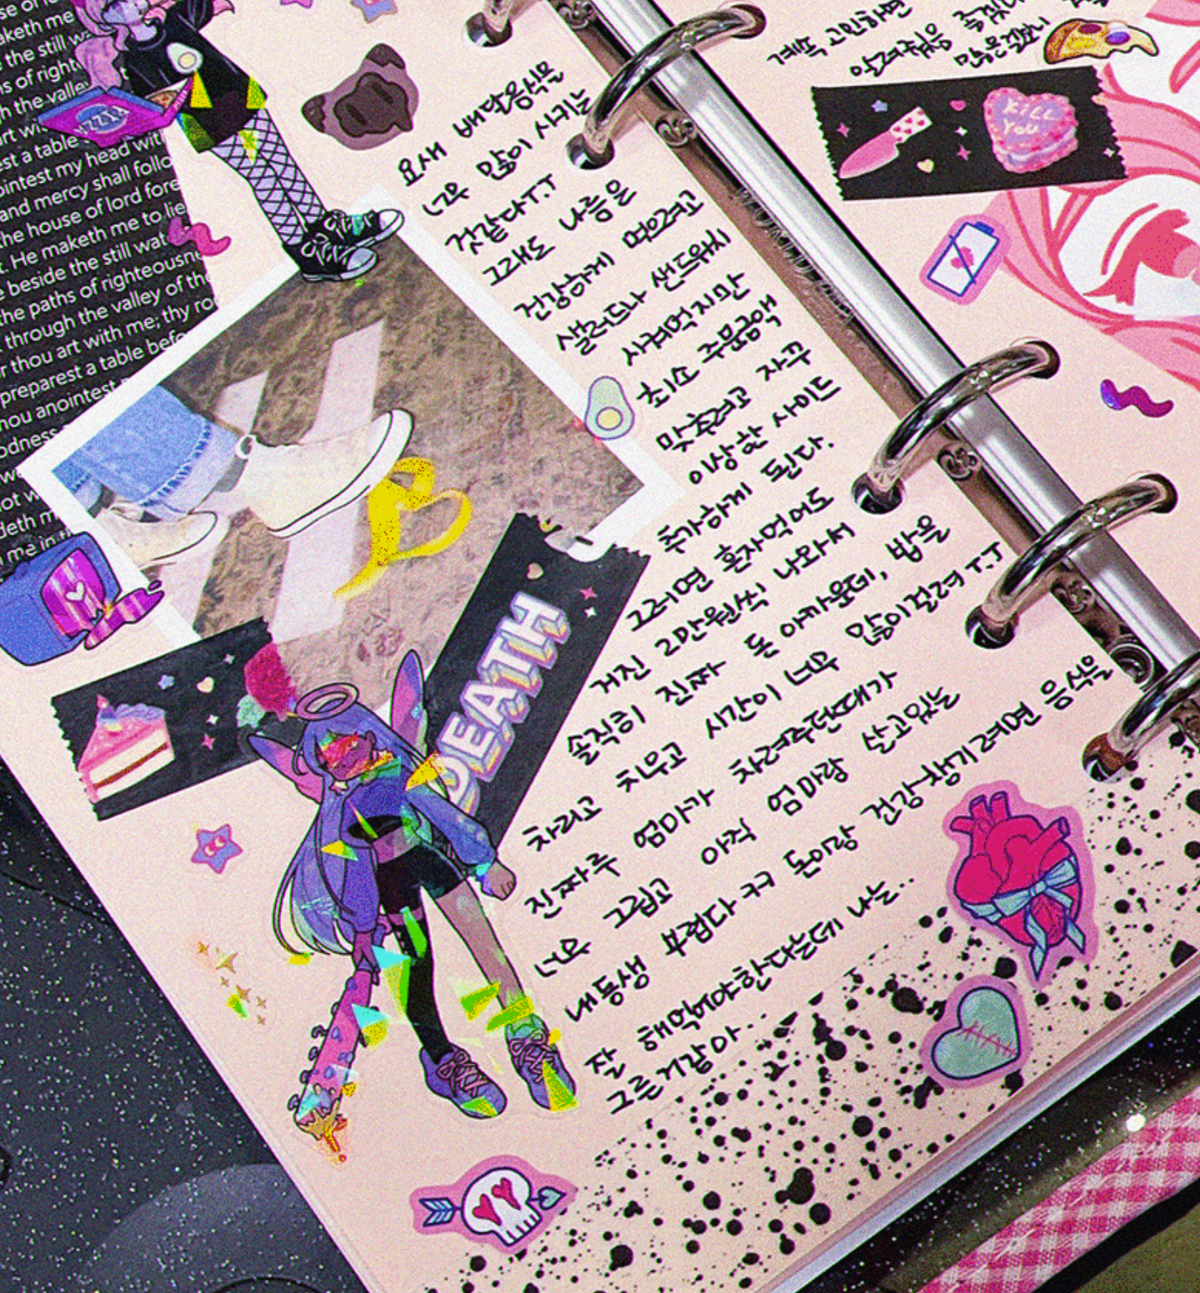 se of lo
aketh me
the still wa
s of righte
h the valley
art wi
est a table
ointest my head with
and mercy shall follo
he house of lord fore
He maketh me to lie
beside the still wat
the paths of righteousne
through the valley of the
r thou art with me; thy ro
preparest a table befo
hou anointest
odness
ot w
deth m
me in th
PIZZA
요새 배달음식을
너무 많이 시키는
것같다T.T
그래도 나름은
건강하게 먹으려고
샐러드나 샌드위치
시켜먹지만
최소 주문액
맞추려고 자꾸
이상한 사이드
추가하게 된다.
그러면 혼자먹어도
거진 2만원씩 나와서
솔직히 진짜 돈 아까운데, 밥을
차리고 치우고 시간이 너무 많이걸려 T.T
진짜루 엄마가 차려주던때가
너무 그립고 아직 엄마랑 살고있는
내동생 부럽다 ㅋㅋ 돈이랑 건강챙기려면 음식을
잘 해먹어야한다는데 나는..
그른거같아..
DEATH
계속 고민하면
KILL
YOU